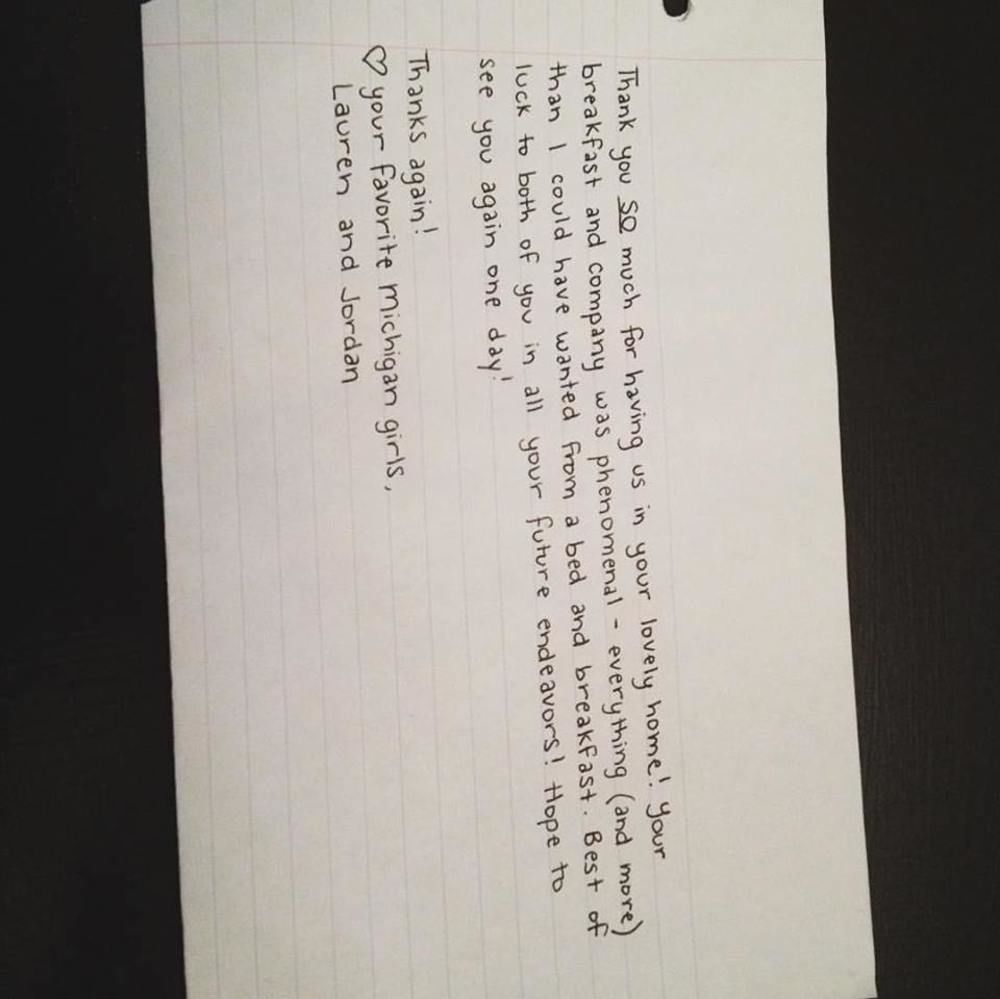 Thank you SO much for having us in your lovely home! Your
breakfast and company was phenomenal - everything (and more)
than I could have wanted from a bed and breakfast. Best of
luck to both of you in all your future endeavors! Hope to
see you again one day!
Thanks again!
♡ your favorite michigan girls,
Lauren and Jordan